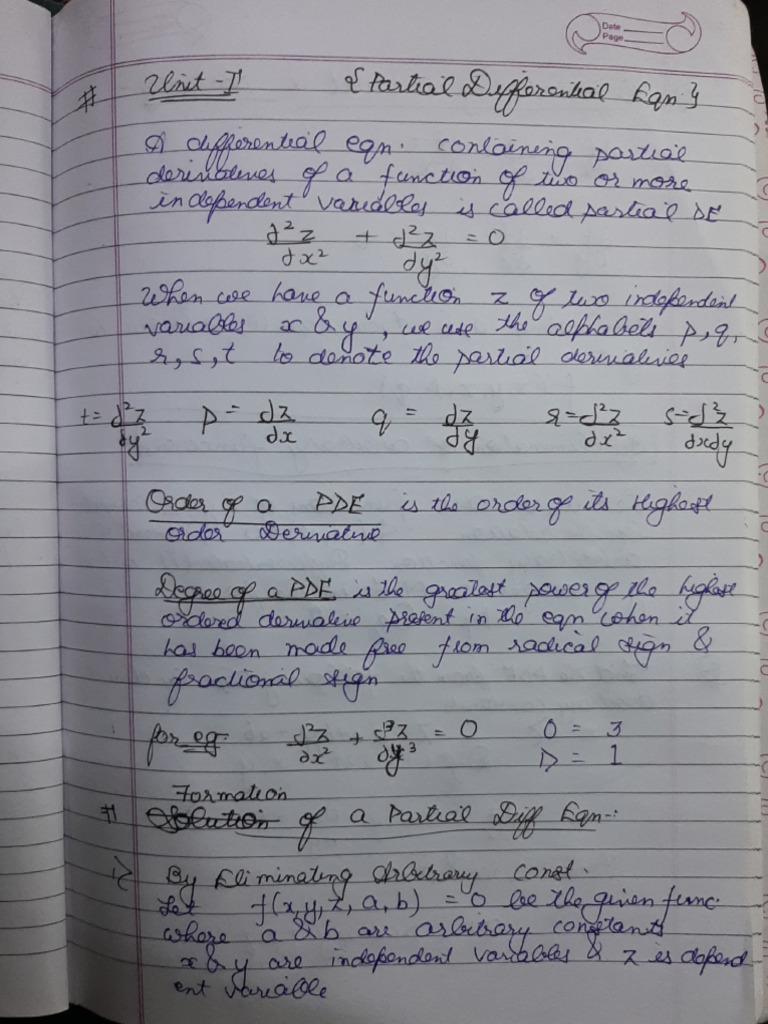 Date
Page
# Unit - I {Partial Differential Eqn.}
A differential eqn. containing partial
derivatives of a function of two or more
independent variables is called partial DE
d²z/dx² + d²z/dy² = 0
When we have a function z of two independent
variables x & y, we use the alphabets p, q,
r, s, t to denote the partial derivatives
t = d²z/dy² p = dz/dx q = dz/dy r = d²z/dx² s = d²z/dxdy
Order of a PDE is the order of its Highest
order Derivative
Degree of a PDE is the greatest power of the highest
ordered derivative present in the eqn when it
has been made free from radical sign &
fractional sign
for eg. d²z/dx² + d³z/dy³ = 0 O = 3
D = 1
Formation
# Solution of a Partial Diff Eqn-:
1) By Eliminating Arbitrary Const.
Let f(x, y, z, a, b) = 0 be the given func.
where a & b are arbitrary constants
x & y are independent variables & z is depend
ent variable